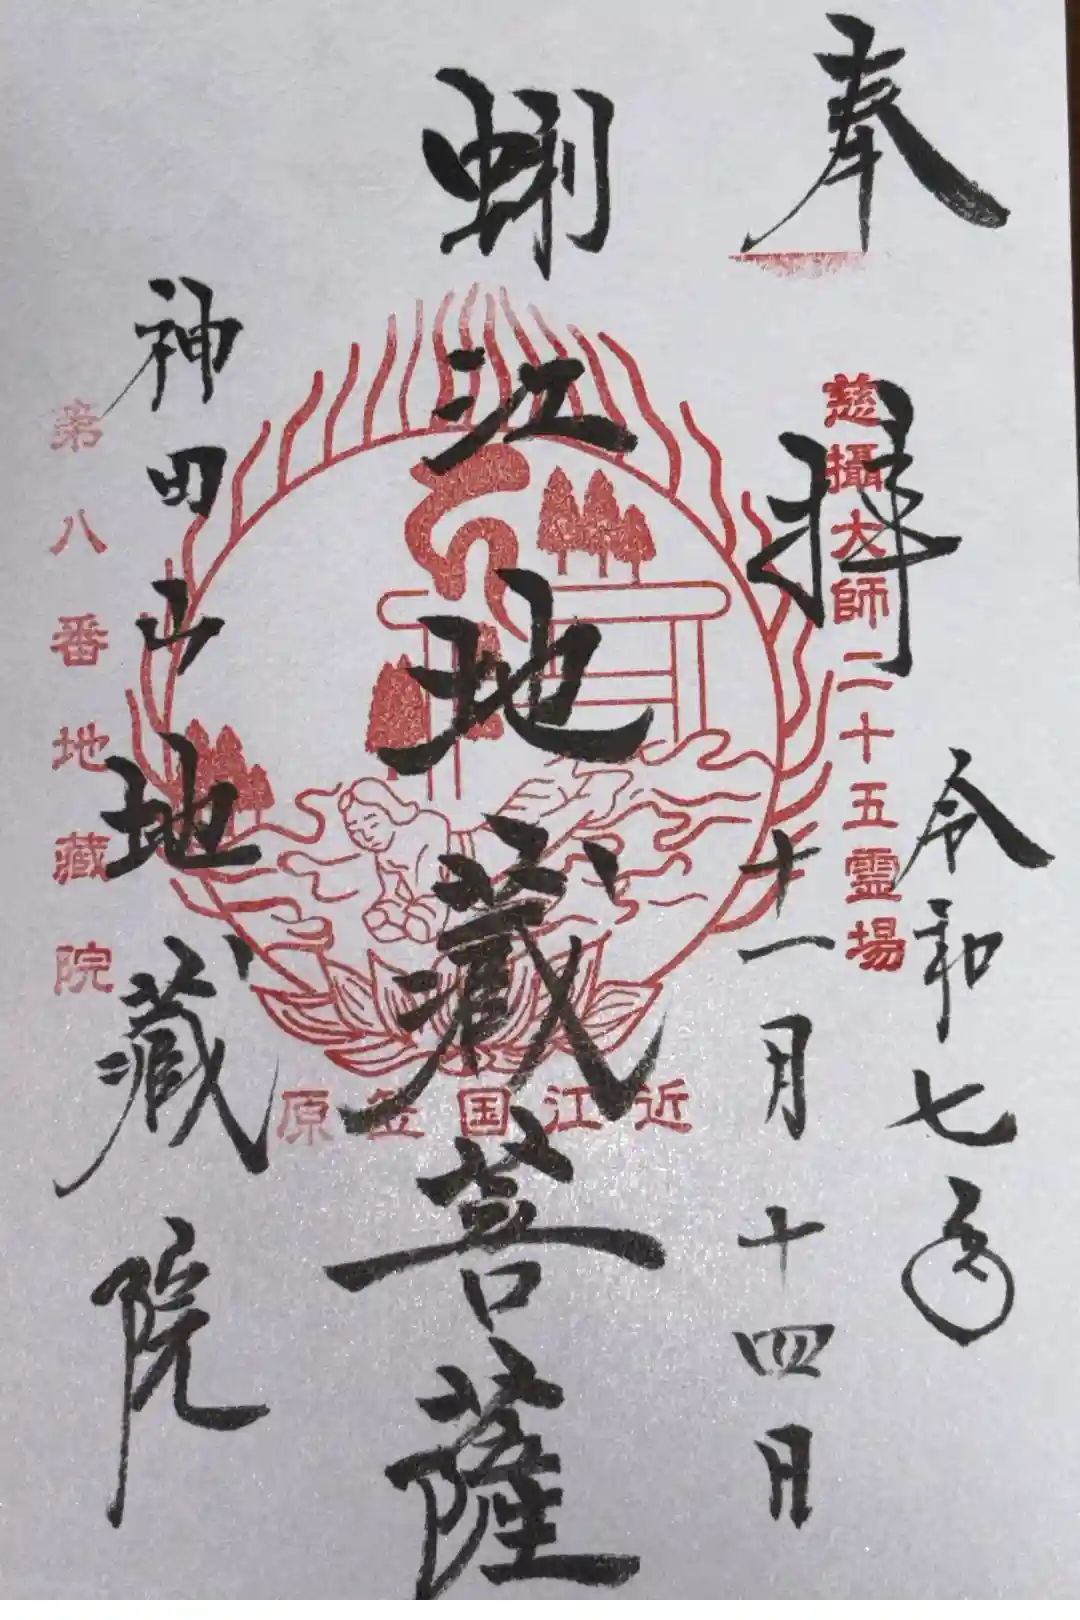 奉拝
令和七年
十一月十四日
慈攝大師二十五霊場
蜊江地蔵菩薩
近江国笠原
神田山地蔵院
第八番地蔵院